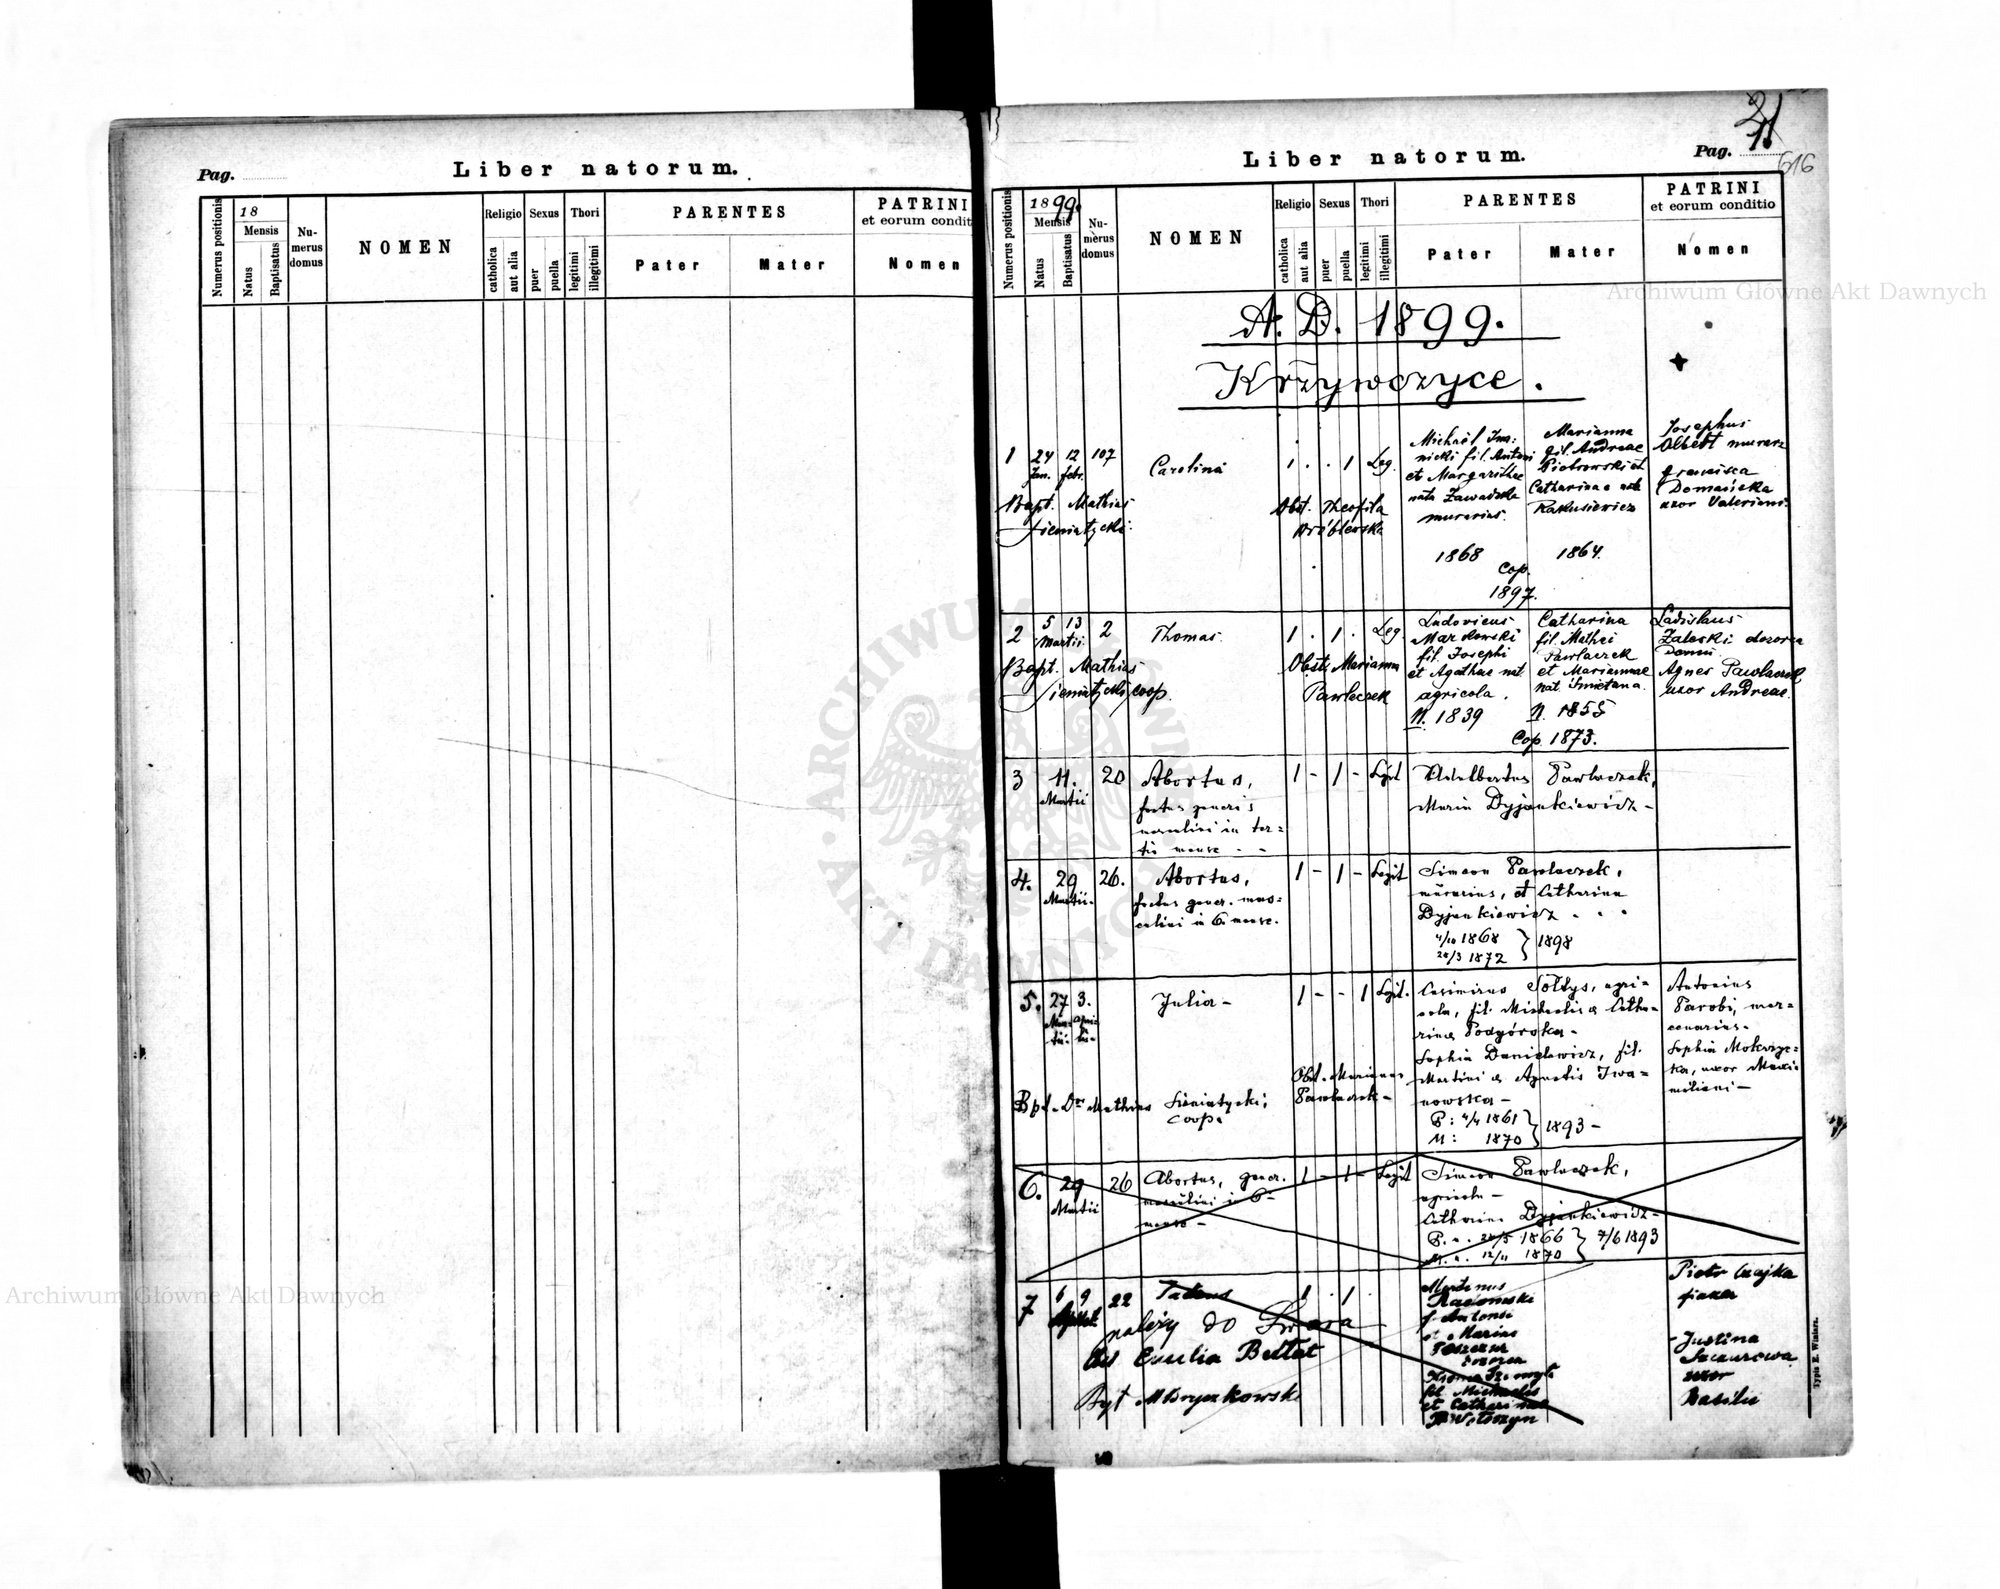 Pag.
Liber natorum.
Numerus positionis
18
Mensis
Natus
Baptisatus
Numerus domus
NOMEN
Religio
catholica
aut alia
Sexus
puer
puella
Thori
legitimi
illegitimi
PARENTES
Pater
Mater
PATRINI
et eorum conditio
Nomen
21
Pag.
616
Liber natorum.
Numerus positionis
1899.
Mensis
Natus
Baptisatus
Numerus domus
NOMEN
Religio
catholica
aut alia
Sexus
puer
puella
Thori
legitimi
illegitimi
PARENTES
Pater
Mater
PATRINI
et eorum conditio
Nomen
A. D. 1899.
Krzywczyce.
1 24 Jan. 12 febr. 107 Carolina 1 . . 1 Leg.
Bapt. Mathias
Sieniatycki
Obst. Theofila
Wróblewska
Michaël Iwa=
nicki fil. Antoni
et Margarithae
nata Zawadzka
murarius.
1868
Marianna
fil. Andreae
Piotrowski et
Catharinae nata
Rakusiewicz
1864.
Cop.
1897.
Josephus
Olbert murarz
Francisca
Domańska
uxor Valeriani.
2 5 13 Martii 2 Thomas 1 . 1 . Leg.
Bapt. Mathias
Sieniatycki, coop.
Obst. Marianna
Pawleczek
Ludovicus
Markowski
fil. Josephi
et Agathae nat
agricola.
N. 1839
Catharina
fil. Mathei
Pawlaczek
et Mariannae
nat. Śmietana.
N. 1855
Cop. 1873.
Ladislaus
Zaleski dozorca
domu
Agnes Pawlaczek
uxor Andreae.
3 11. Martii 20 Abortus, 1 - 1 - Legit
foetus generis
masculini in ter=
tio mense - -
Adalbertus Pawlaczek,
Maria Dyjankiewicz -
4. 29 Martii. 26. Abortus, 1 - 1 - Legit
foetus gener. mas=
culini in 6. mense.
Simeon Pawlaczek,
murarius, et Catharina
Dyjankiewicz . . .
4/10 1868 } 1898
28/3 1872
5. 27 Martii- 3. Aprilis- Julia - 1 - - 1 Legit.
Bpt. Dr Mathias Sieniatycki,
coop.
Obst. Marianna
Pawlaczek -
Casimirus Sołtys, agri=
cola, fil. Michaelis & Catha=
rinae Podgórska -
Sophia Danielewicz, fil.
Martini & Agnetis Iwa=
nowska -
P: 4/4 1861 } 1893 -
M: 1870
Antonius
Parobi, mer=
cenarius.
Sophia Mokrzyc=
ka, uxor Maxi=
miliani -
6. 29 Martii 26 Abortus, gener. 1 - 1 - Legit
masculini in 6-
mense -
Simeon Pawlaczek,
agricola -
Catharina Dyjankiewicz -
P. n. 28/5 1866 } 7/6 1893
M. n. 12/11 1870
7 6 9 Aprilis 22 Tadeus 1 . 1 .
należy do Lwowa
Obs Emilia Bettat
Bpt M Bryczkowski
Martinus
Radomski
f Antonii
et Mariae
fil Michaelis
et Catharinae
Wołoszyn
Piotr Czajka
fiaker
Justina
Szczurowa
uxor
Basilii
Typis E. Winiarz.
Archiwum Główne Akt Dawnych
Archiwum Główne Akt Dawnych
ARCHIWUM GŁÓWNE AKT DAWNYCH